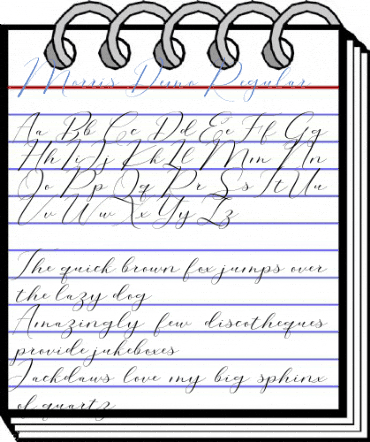 Morris Duno Regular
Aa Bb Cc Dd Ee Ff Gg
Hh Ii Jj Kk Ll Mm Nn
Oo Pp Qq Rr Ss Tt Uu
Vv Ww Xx Yy Zz
The quick brown fox jumps over
the lazy dog
Amazingly few discotheques
provide jukeboxes
Jackdaws love my big sphinx
of quartz